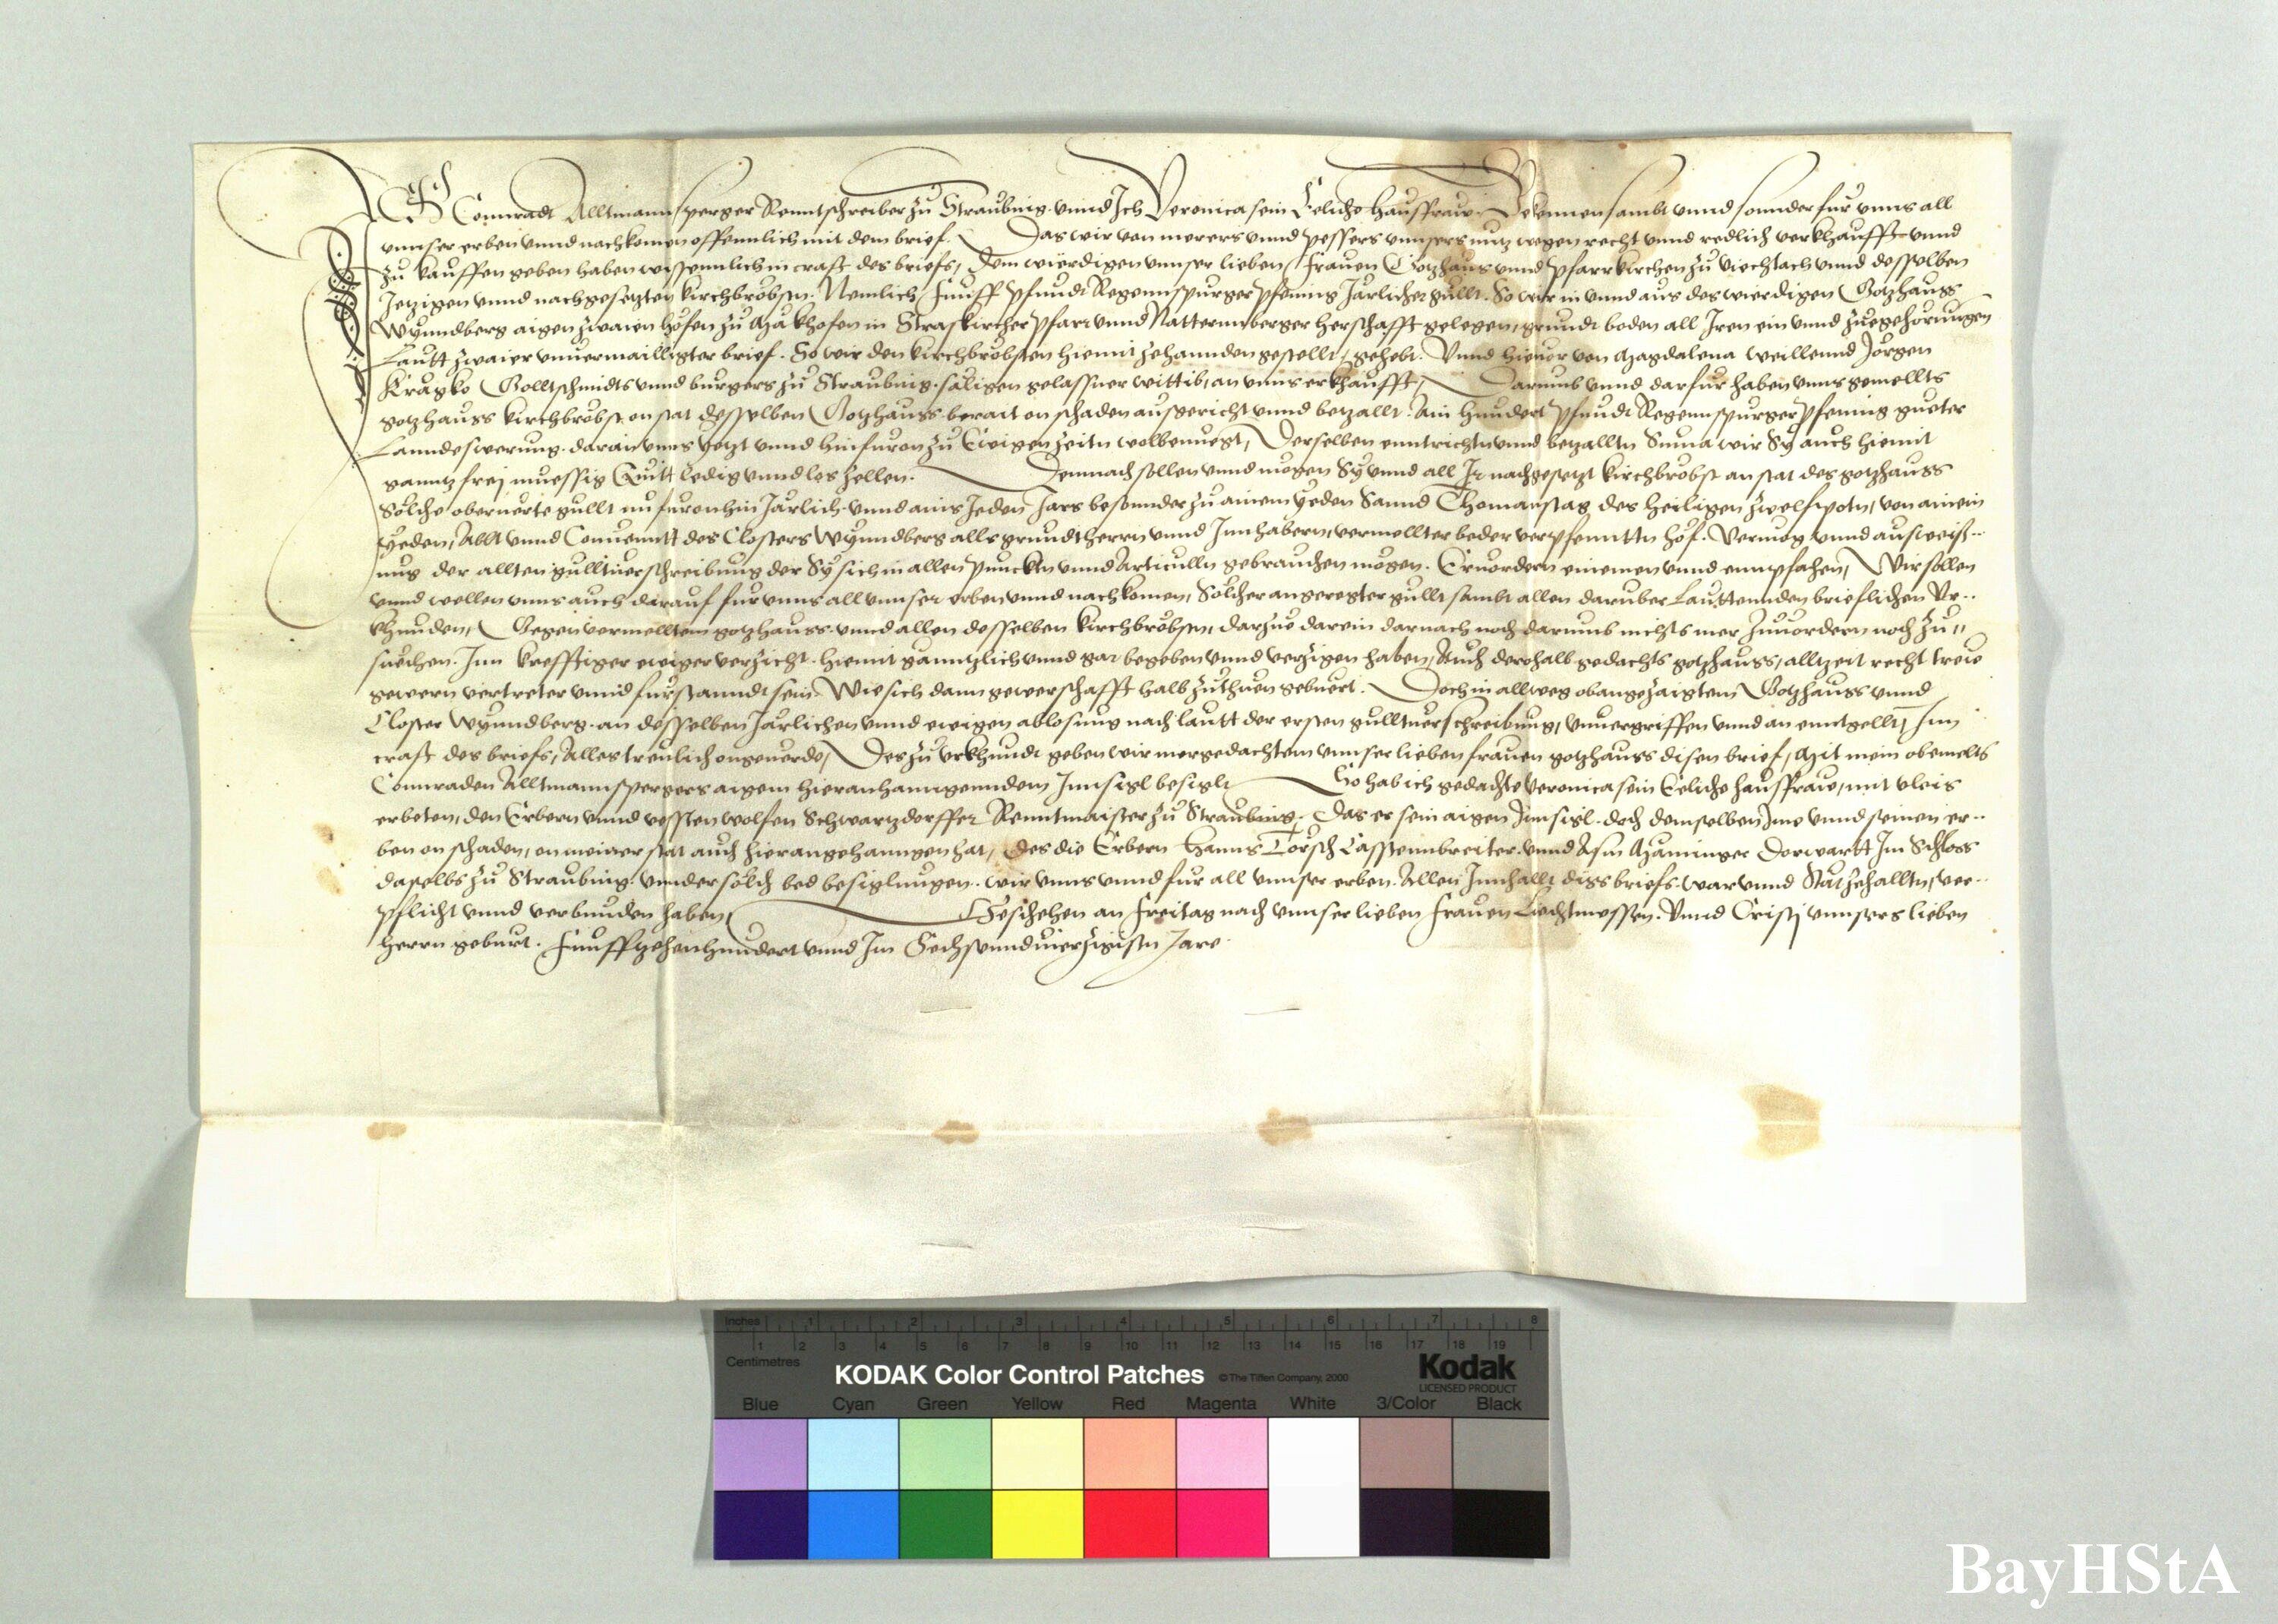 Ich Connradt Alltmannsperger Renntschreiber zu Straubing. vnnd Ich Veronica sein Eeliche hausfraw. Bekennen sambt vnnd sonnder fur vnns all
vnnser erben vnnd nachkomen offennlich mit dem brief. Das wir von merers vnnd pessers vnnsers nutz wegen recht vnnd redlich verkhaufft vnnd
zu kauffen geben haben wissennlich in craft des briefs, Dem wierdigen vnnser lieben frauen Gotzhaus vnnd pfarrkirchen zu viechtach vnnd desselben
Jetzigen vnnd nachgesetzten kirchbröbsten. Nemlich funff pfundt Regennspurger pfening Järlicher gullt. So wir in vnnd aus des wierdigen Gotzhauss
Wynndberg aigen zwaien höfen zu Makhofen in Straskircher pfarr vnnd Natternnberger herschafft gelegen, grundt boden all Iren ein vnnd zuegehörungen
Lautt zwaier vnuermailligter brief. So wir den kirchbröbsten hiemit zehannden gestellt, gehebt. Vnnd hieuor von Magdalena weillennd Jörgen
Krägko Golltschmidts vnnd burgers zu Straubing. säligen gelassner wittib, an vnns erkhaufft, Darumb vnnd darfur haben vnns gemellts
gotzhauss kirchbröbst an stat desselben Gotzhauss berait on schaden ausgericht vnnd betzallt. Ain hundert pfundt Regennspurger pfening gueter
Lanndeswerung. daran vnns yetzt vnnd hinfuron zu Ewigen zeitn wolbenuegt, Derselben enntrichtn vnnd betzalltn Suma wir Sy auch hiemit
ganntz frej muessig Quitt ledig vnnd los zellen. Demnach sollen vnnd mogen Sy vnnd all Ir nachgesetzt kirchbröbst an stat des gotzhauss
Solche oberuerte gullt nu furonhin Järlich. vnnd ains Jeden Jars besonnder zu ainem yeden Sannd Thomanstag des heiligen zwelfpotn, von ainem
yeden, Abbt vnnd Conuenntt des Closters Wynndberg alls grundtherrn vnnd Innhabern, vermellter beder verpfenntn höf. Vermög vnnd ausweiss..
ung der allten gulltuerschreibung der Sy sich in allen punckten vnnd Articulln gebrauchen mögen. Eruordern einemen vnnd emnpfahen, Wir sollen
vnnd wellen vnns auch darauf fur vnns all vnnser erben vnnd nachkomen, Sölcher angeregter gullt sambt allen daruber Lauttennden brieflichen Vr..
khunden, Gegen vermelltem gotzhauss. vnnd allen desselben kirchbröbsten, darzue darein darnach noch darumb nichts mer zuuordern noch zu"
suechen. Inn krefftiger ewiger verzicht. hiemit ganntzlich vnnd gar begeben vnnd verzigen haben, Auch derohalb gedachts gotzhauss, alltzeit recht trew
gewern vertreter vnnd furstanndt sein. Wie sich dann gewerschafft halb zuthuen gebuert. Doch in allweg obangezaigtem Gotzhauss vnnd
Closter Wynndberg. an desselben Järlichen vnnd ewigen ablosung nach lautt der ersten gulltuerschreibung, vnuergriffen vnnd an enntgellt, Inn
craft des briefs, Alles treulich ongeuerde, Des zu vrkhundt geben wir mergedachtem vnnser lieben frauen gotzhauss disen brief, Mit mein obemelts
Connraden Alltmannspergers aigem hieranhanngenndem Innsigl besiglt So hab ich gedachte Veronica sein Eeliche hausfraw, mit vleis
erbeten, den Erbern vnnd vessten wolfen Schwartzdorffer Renntmaister zu Straubing. Das er sein aigen Innsigl. doch demselben Ime vnnd seinen er..
ben on schaden, an meiner stat auch hieran gehanngen hat, Des die Erbern Hanns Törsch Casstennbreiter. vnnd Asm Maminger Dorwartt Im Schloss
daselbs zu Straubing. vnnder sölch bed besiglungen. wir vnns vnnd fur all vnnser erben. Allen Innhallt diss briefs. war vnnd Stät zehalltn, ver..
pflicht vnnd verbunden haben, Geschehen an Freitag nach vnnser lieben frauen Liechtmessen. Vnnd Cristj vnnsers lieben
herrn geburt. Funffzehenhundert vnnd Im Sechssunduierzigistn Jare.
Inches 1 2 3 4 5 6 7 8
Centimetres 1 2 3 4 5 6 7 8 9 10 11 12 13 14 15 16 17 18 19
KODAK Color Control Patches © The Tiffen Company, 2000 Kodak
LICENSED PRODUCT
Blue Cyan Green Yellow Red Magenta White 3/Color Black
BayHStA